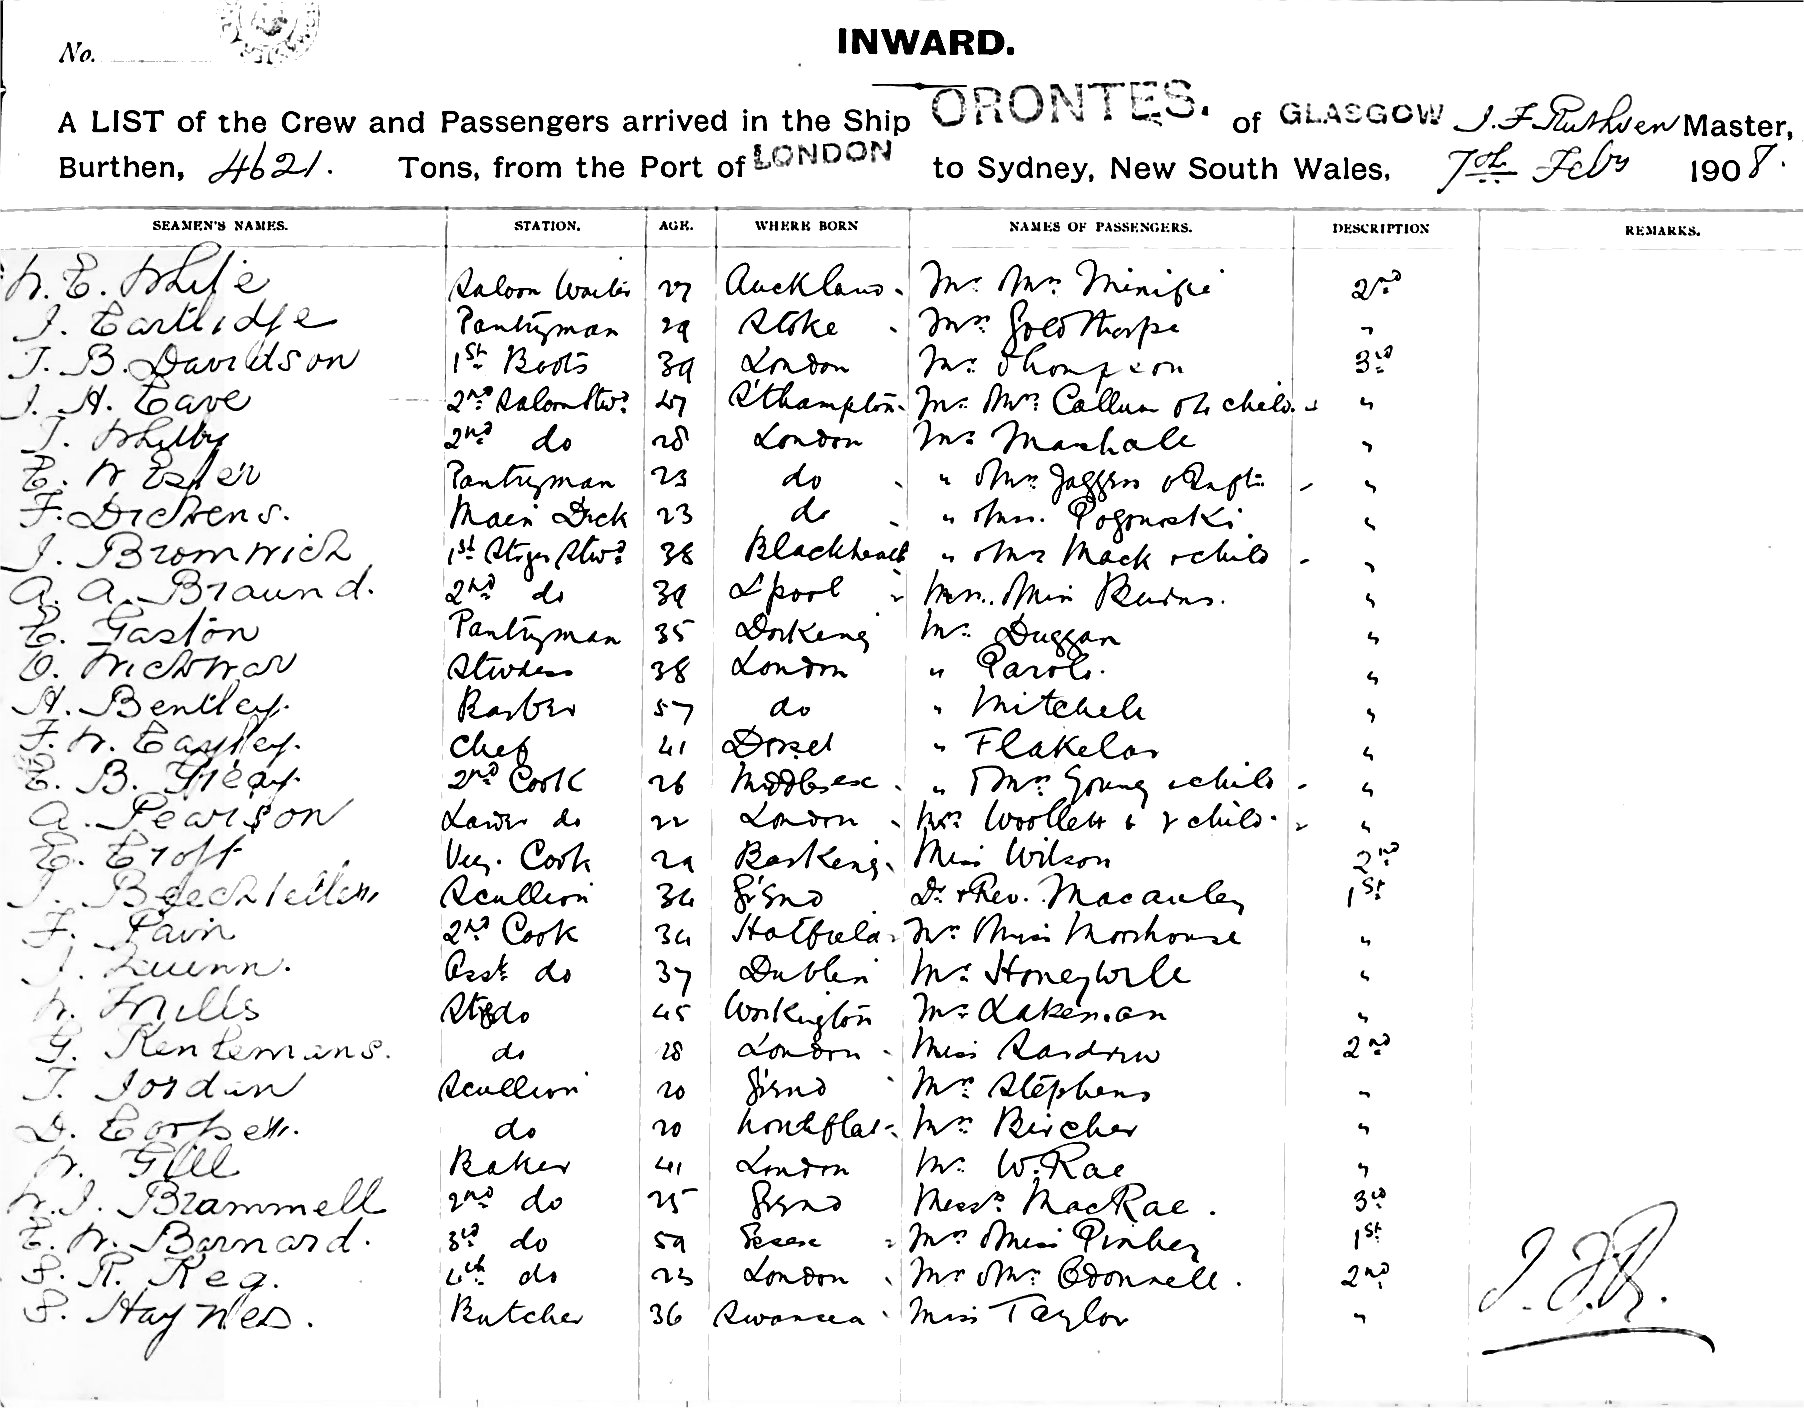 No.
INWARD.
A LIST of the Crew and Passengers arrived in the Ship ORONTES. of GLASGOW J. F Ruthven Master,
Burthen, 4621. Tons, from the Port of LONDON to Sydney, New South Wales, 7th Feby 1908.
SEAMEN'S NAMES. STATION. AGE. WHERE BORN NAMES OF PASSENGERS. DESCRIPTION REMARKS.
W. E. White Saloon Waiter 27 Auckland Mr Mrs Minifie 2nd
J. Eartlidge Pantryman 29 Stoke Mrs Goldthorpe "
J. B. Davidson 1st Boots 39 London Mr Thompson 3rd
J. H. Eave 2nd Saloon Stwd 47 S'thampton Mr Mrs Callum child "
J. Whitby 2nd do 28 London Mr Marshall "
E. W Pantryman 23 do " & Mrs Jaggers & Inft "
F. Dickens. Main Deck 23 do " & Mrs. Pogonoski "
J. Bromwich 1st Stge Stwd 38 Blackheath " & Mrs Mack & child "
A. A. Braund. 2nd do 39 L'pool Mrs. & Miss Burns. "
E. Gaston Pantryman 35 Dorking Mr Duggan "
Stwdess 38 London " "
H. Bentley. Barber 57 do " Mitchell "
F. W. Chef 41 Dorset " Flakelar "
E. B. Gray. 2nd Cook 26 Middlesex " & Mrs Young & child "
A. Pearson Larder do 22 London Mrs Woollett & 2 child. "
E. Veg. Cook 29 Barking Miss Wilson 2nd
J. Scullion 34 G'snd Dr & Rev. Macauley 1st
F. Pain 2nd Cook 34 Hatfield Mr & Miss Moorhouse "
J. Quinn. Asst do 37 Dublin Mr Honeywill "
W. Mills Stge do 45 Workington Mr Lakeman "
G. Kentemans. do 28 London Miss 2nd
T. Jordan Scullion 20 G'snd Mrs Stephens "
D. do 20 Northfleet Mrs Bircher "
W. Gill Baker 41 London Mr W. Rae "
W. J. Brammell 2nd do 25 G'snd Messrs MacRae. 3rd
E. W. Barnard. 3rd do 59 Essex Mrs & Miss Pinhey 1st
S. R. Reg. 4th do 23 London Mr & Mrs O'Donnell. 2nd
S. Haynes. Butcher 36 Swansea Miss Taylor "
J. F. R.